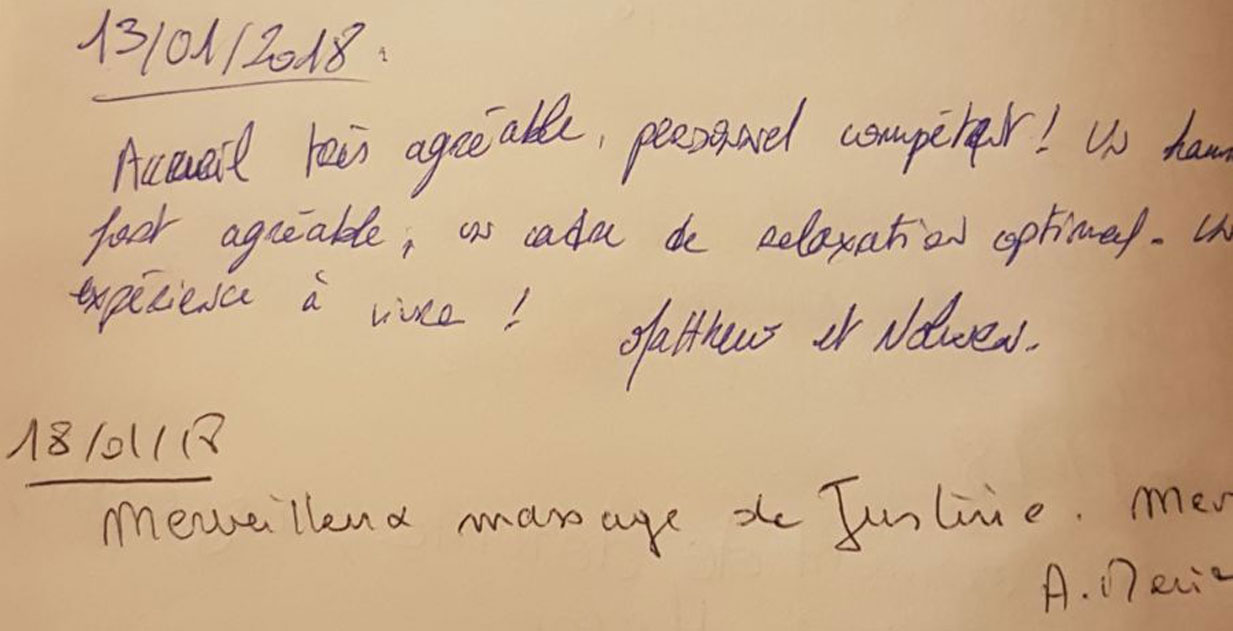 13/01/2018.
Accueil très agréable, personnel compétent! Un
fort agréable, un cadre de relaxation optimal. Un
expérience à vivre !
Matthew et Nolwen.
18/01/18
Merveilleux massage de Justine. Mer
A. Marie